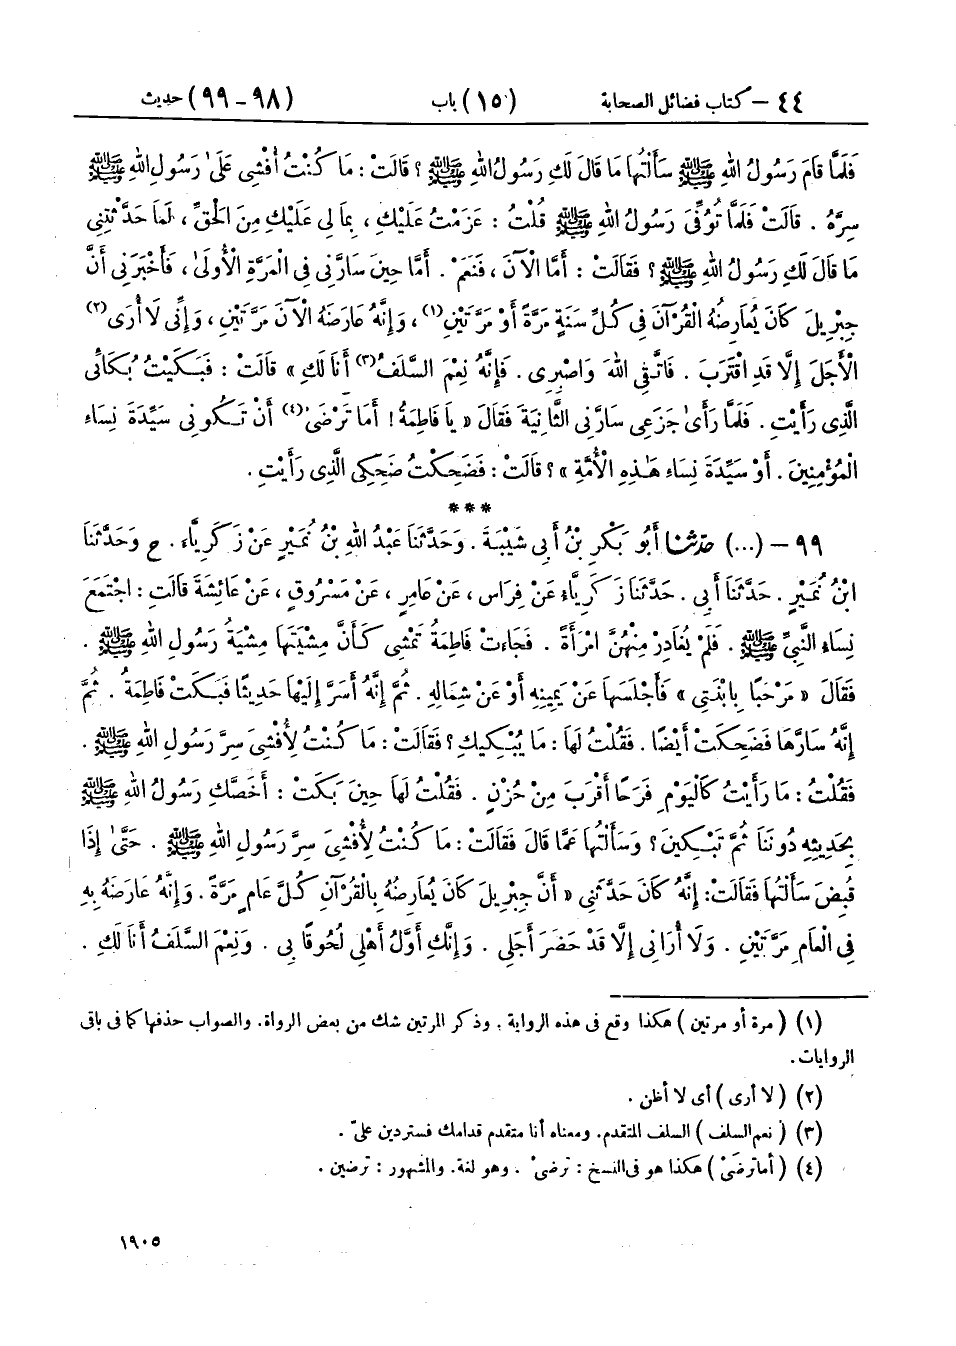 ٤٤ – كتاب فضائل الصحابة (١٥) باب (٩٨ – ٩٩) حديث
فَلَمَّا قَامَ رَسُولُ اللهِ ﷺ سَأَلْتُهَا مَا قَالَ لَكِ رَسُولُ اللهِ ﷺ ؟ قَالَتْ : مَا كُنْتُ أُفْشِي عَلَىٰ رَسُولِ اللهِ ﷺ
سِرَّهُ . قَالَتْ فَلَمَّا تُوُفِّيَ رَسُولُ اللهِ ﷺ قُلْتُ : عَزَمْتُ عَلَيْكِ ، بِمَا لِي عَلَيْكِ مِنَ الْحَقِّ ، لَمَا حَدَّثْتِنِي
مَا قَالَ لَكِ رَسُولُ اللهِ ﷺ ؟ فَقَالَتْ : أَمَّا الْآنَ ، فَنَعَمْ . أَمَّا حِينَ سَارَّنِي فِي الْمَرَّةِ الْأُولَىٰ ، فَأَخْبَرَنِي أَنَّ
جِبْرِيلَ كَانَ يُعَارِضُهُ الْقُرْآنَ فِي كُلِّ سَنَةٍ مَرَّةً أَوْ مَرَّتَيْنِ(١) ، وَإِنَّهُ عَارَضَهُ الْآنَ مَرَّتَيْنِ ، وَإِنِّي لَا أُرَى(٢)
الْأَجَلَ إِلَّا قَدِ اقْتَرَبَ . فَاتَّقِي اللهَ وَاصْبِرِي . فَإِنَّهُ نِعْمَ السَّلَفُ(٣) أَنَا لَكِ » قَالَتْ : فَبَكَيْتُ بُكَائِي
الَّذِي رَأَيْتِ . فَلَمَّا رَأَىٰ جَزَعِي سَارَّنِي الثَّانِيَةَ فَقَالَ « يَا فَاطِمَةُ ! أَمَا تَرْضَىْ(٤) أَنْ تَكُونِي سَيِّدَةَ نِسَاءِ
الْمُؤْمِنِينَ . أَوْ سَيِّدَةَ نِسَاءِ هٰذِهِ الْأُمَّةِ » ؟ قَالَتْ : فَضَحِكْتُ ضَحِكِي الَّذِي رَأَيْتِ .
* * *
٩٩ – (...) حَدَّثَنَا أَبُو بَكْرِ بْنُ أَبِي شَيْبَةَ . وَحَدَّثَنَا عَبْدُ اللهِ بْنُ نُمَيْرٍ عَنْ زَكَرِيَّاءَ . ح وَحَدَّثَنَا
ابْنُ نُمَيْرٍ . حَدَّثَنَا أَبِي . حَدَّثَنَا زَكَرِيَّاءُ عَنْ فِرَاسٍ ، عَنْ عَامِرٍ ، عَنْ مَسْرُوقٍ ، عَنْ عَائِشَةَ قَالَتِ : اجْتَمَعَ
نِسَاءُ النَّبِيِّ ﷺ . فَلَمْ يُغَادِرْ مِنْهُنَّ امْرَأَةً . فَجَاءَتْ فَاطِمَةُ تَمْشِي كَأَنَّ مِشْيَتَهَا مِشْيَةُ رَسُولِ اللهِ ﷺ .
فَقَالَ « مَرْحَبًا بِابْنَتِي » فَأَجْلَسَهَا عَنْ يَمِينِهِ أَوْ عَنْ شِمَالِهِ . ثُمَّ إِنَّهُ أَسَرَّ إِلَيْهَا حَدِيثًا فَبَكَتْ فَاطِمَةُ . ثُمَّ
إِنَّهُ سَارَّهَا فَضَحِكَتْ أَيْضًا . فَقُلْتُ لَهَا : مَا يُبْكِيكِ ؟ فَقَالَتْ : مَا كُنْتُ لِأُفْشِيَ سِرَّ رَسُولِ اللهِ ﷺ .
فَقُلْتُ : مَا رَأَيْتُ كَالْيَوْمِ فَرَحًا أَقْرَبَ مِنْ حُزْنٍ . فَقُلْتُ لَهَا حِينَ بَكَتْ : أَخَصَّكِ رَسُولُ اللهِ ﷺ
بِحَدِيثِهِ دُونَنَا ثُمَّ تَبْكِينَ ؟ وَسَأَلْتُهَا عَمَّا قَالَ فَقَالَتْ : مَا كُنْتُ لِأُفْشِيَ سِرَّ رَسُولِ اللهِ ﷺ . حَتَّىٰ إِذَا
قُبِضَ سَأَلْتُهَا فَقَالَتْ : إِنَّهُ كَانَ حَدَّثَنِي « أَنَّ جِبْرِيلَ كَانَ يُعَارِضُهُ بِالْقُرْآنِ كُلَّ عَامٍ مَرَّةً . وَإِنَّهُ عَارَضَهُ بِهِ
فِي الْعَامِ مَرَّتَيْنِ . وَلَا أُرَانِي إِلَّا قَدْ حَضَرَ أَجَلِي . وَإِنَّكِ أَوَّلُ أَهْلِي لُحُوقًا بِي . وَنِعْمَ السَّلَفُ أَنَا لَكِ .
(١) ( مرة أو مرتين ) هكذا وقع في هذه الرواية . وذكر المرتين شك من بعض الرواة . والصواب حذفها كما في باقي
الروايات .
(٢) ( لا أرى ) أي لا أظن .
(٣) ( نعم السلف ) السلف المتقدم . ومعناه أنا متقدم قدامك فستردين عليّ .
(٤) ( أما ترضَىْ ) هكذا هو في النسخ : ترضىْ . وهو لغة . والمشهور : ترضين .
١٩٠٥